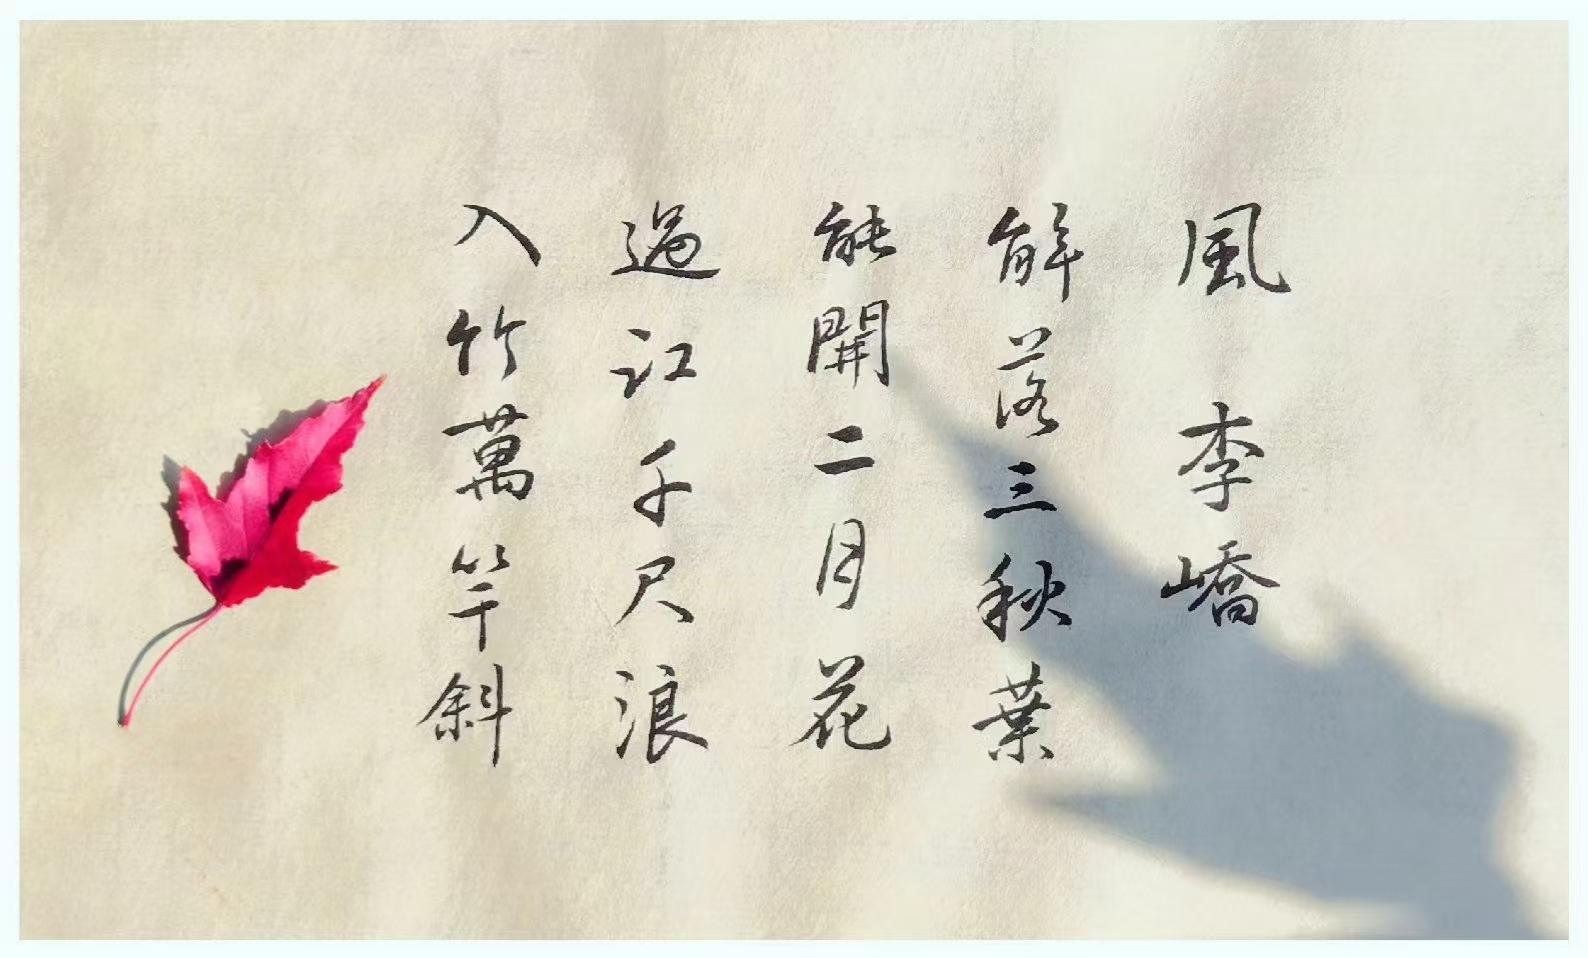 風 李嶠
解落三秋葉
能開二月花
過江千尺浪
入竹萬竿斜